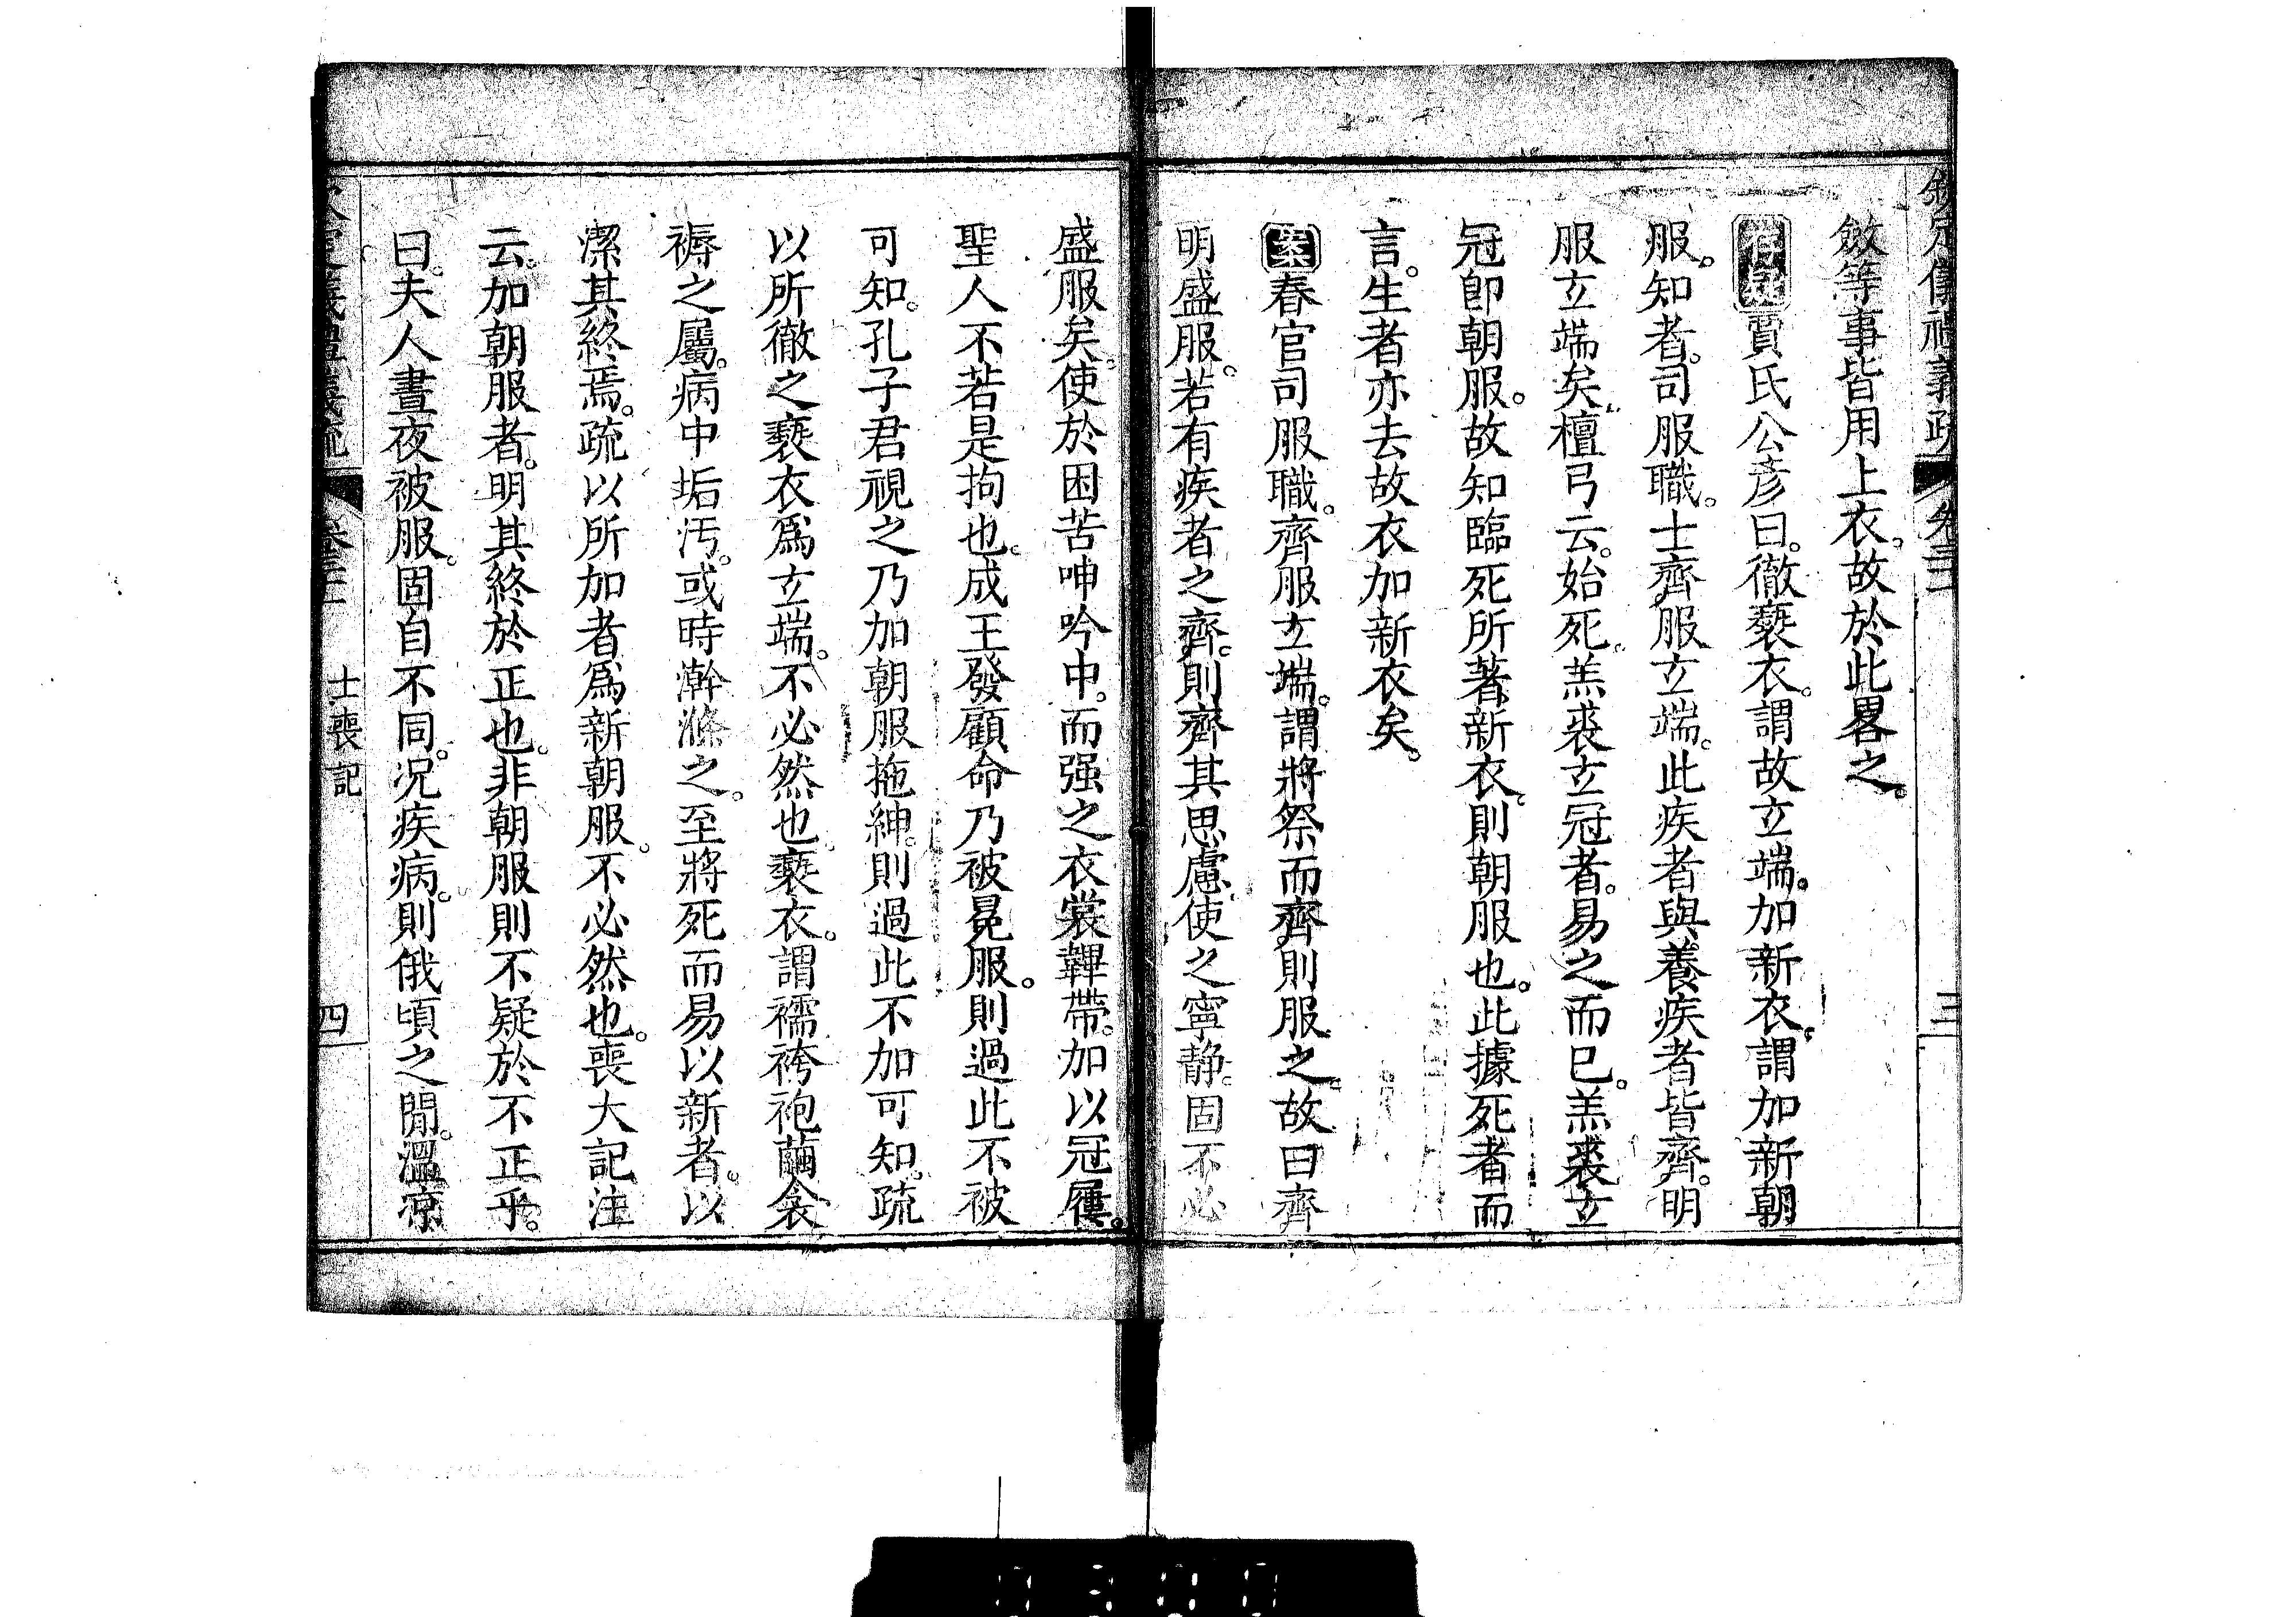 欽定儀禮義疏 卷三 三
斂等事皆用上衣。故於此畧之。
存疑賈氏公彥曰。徹褻衣。謂故立端。加新衣。謂加新朝
服。知者。司服職。士齊服立端。此疾者與養疾者皆齊。明
服立端矣。檀弓云。始死。羔裘立冠者。易之而已。羔裘立
冠卽朝服。故知臨死所著新衣。則朝服也。此據死者而
言。生者亦去故衣加新衣矣。
案春官司服職。齊服立端。謂將祭而齊則服之。故曰齊
明盛服。若有疾者之齊。則齊其思慮。使之寧靜。固不必
盛服矣。使於困苦呻吟中。而强之衣裳韠帶。加以冠屨。
聖人不若是拘也。成王發顧命乃被冕服。則過此不被
可知。孔子君視之乃加朝服拖紳。則過此不加可知。疏
以所徹之褻衣爲立端。不必然也。褻衣。謂襦袴袍繭衾
褥之屬。病中垢汚。或時澣滌之。至將死而易以新者。以
潔其終焉。疏以所加者爲新朝服。不必然也。喪大記注
云。加朝服者。明其終於正也。非朝服則不疑於不正乎。
曰。夫人晝夜被服。固自不同。况疾病。則俄頃之閒。溫凉
欽定儀禮義疏 卷三 士喪記 四